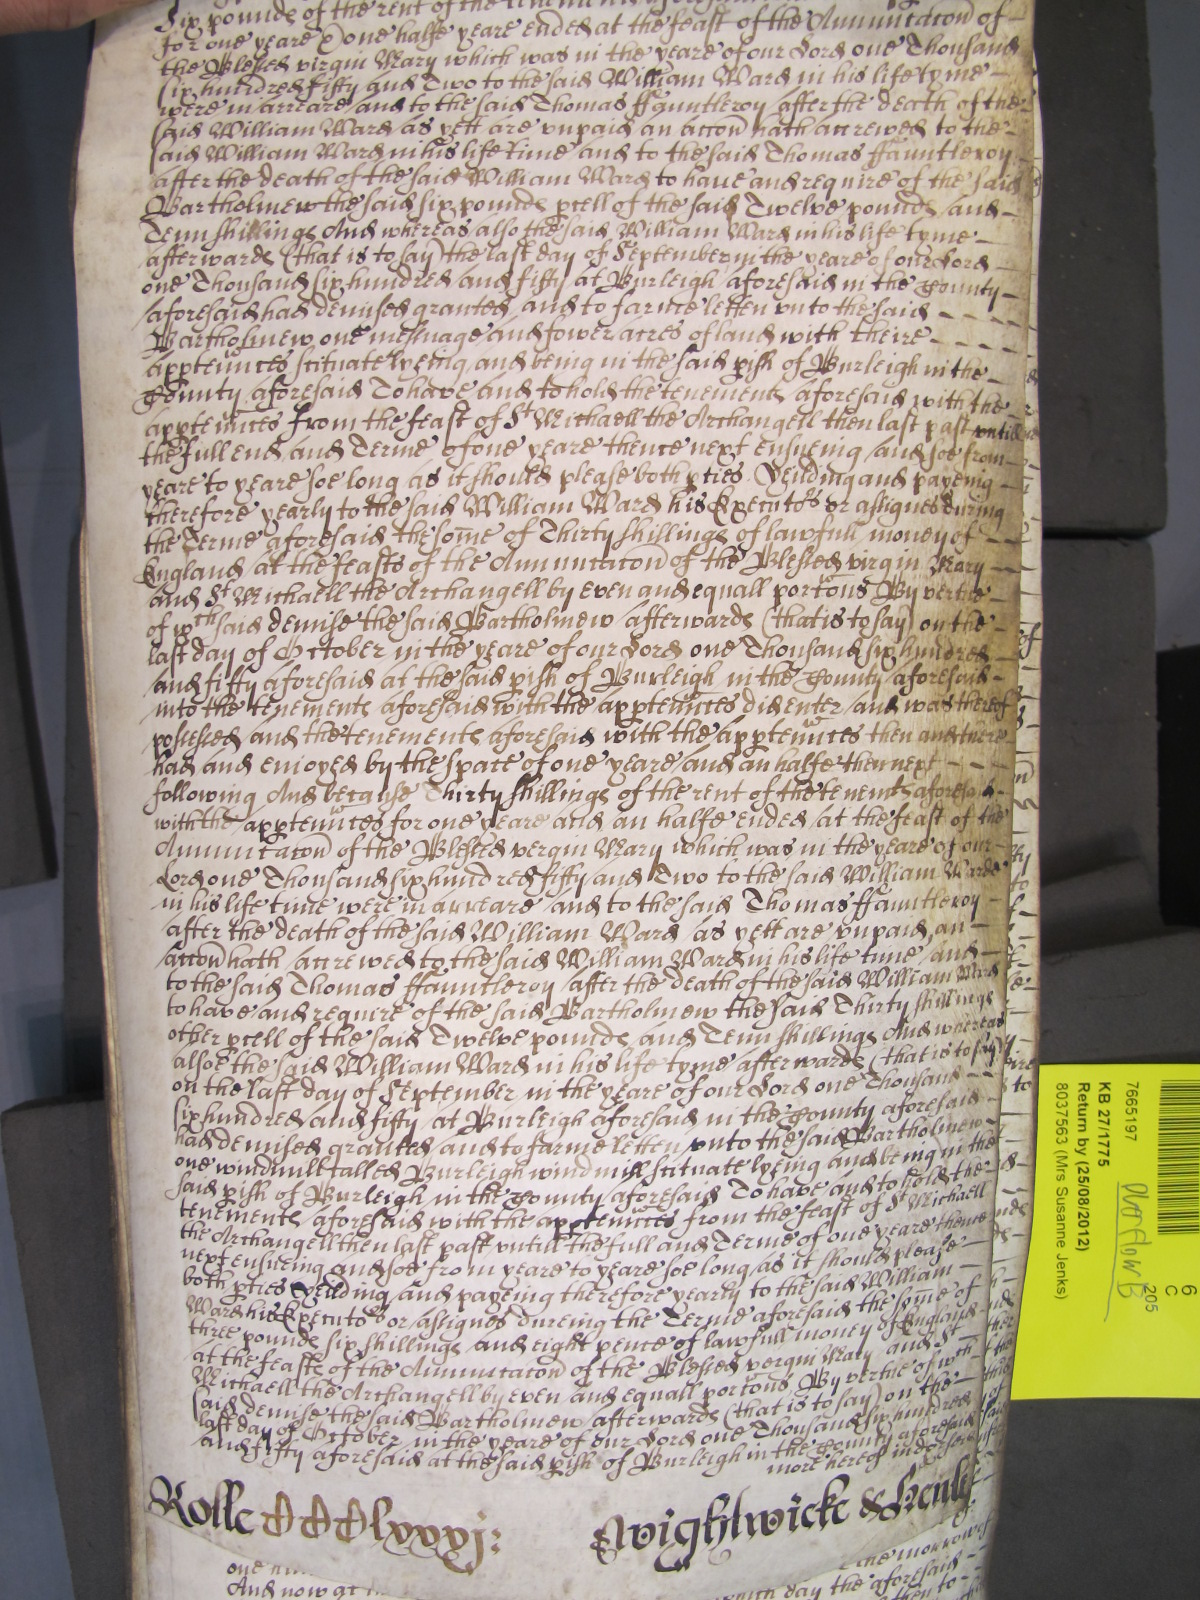 Six pounds of the rent of the tenements aforesaid
for one yeare & one halfe yeare ended at the feast of the Annunciacon of
the Blessed virgin Mary which was in the yeare of our Lord one Thousand
six hundred fifty and Two to the said William Ward in his life tyme
were in arreare and to the said Thomas ffauntleroy after the death of the
said William Ward as yett are unpaid an accon hath accrewed to the
said William Ward in his life time and to the said Thomas ffauntleroy
after the death of the said William Ward to have and require of the said
Bartholmew the said six pounds pcell of the said Twelve pounds and
Tenn shillings And whereas also the said William Ward in his life tyme
afterwards (that is to say) the last day of September in the yeare of our Lord
one Thousand six hundred and fiffty at Burleigh aforesaid in the County
aforesaid had demised granted and to farme letten unto the said
Bartholmew one messuage and fower acres of land with theire
apptenncs scituate lyeing and being in the said pish of Burleigh in the
County aforesaid To have and to hold the tenements aforesaid with the
apptenncs from the feast of St Michaell the Archangell then last past untill
the full end and Terme of one yeare thence next ensueing and soe from
yeare to yeare soe long as it should please both pties Yeilding and payeing
therefore yearly to the said William Ward his Executors or assignes during
the Terme aforesaid the some of Thirty shillings of lawfull money of
England at the feasts of the Annunciacon of the Blessed virgin Mary
and St Michaell the Archangell by even and equall porcons By vertue
of wch said demise the said Bartholmew afterwards (that is to say) on the
last day of October in the yeare of our Lord one Thousand six hundred
and fiffty aforesaid at the said pish of Burleigh in the County aforesaid
into the tenements aforesaid with the apptenncs did enter and was thereof
possessed and the tenements aforesaid with the apptenncs then and there
had and enioyed by the space of one yeare and an halfe then next
following And because Thirty shillings of the rent of the tenemts aforesaid
with the apptenncs for one yeare and an halfe ended at the feast of the
Annunciacon of the Blessed vergin Mary which was in the yeare of our
Lord one Thousand six hundred fifty and Two to the said William Ward
in his life time were in arreare and to the said Thomas ffauntleroy
after the death of the said William Ward as yett are unpaid an
accon hath accrewed to the said William Ward in his life time and
to the said Thomas ffauntleroy after the death of the said William Ward
to have and require of the said Bartholmew the said Thirty shillings
other pcell of the said Twelve pounds and Tenn shillings And whereas
alsoe the said William Ward in his life tyme afterwards (that is to say)
on the last day of September in the yeare of our Lord one Thousand
six hundred and fiffty at Burleigh aforesaid in the County aforesaid
had demised granted and to farme letten unto the said Bartholmew
one windmill called Burleigh wind mill scituate lyeing and being in the
said pish of Burleigh in the County aforesaid To have and to hold the
tenements aforesaid with the apptenncs from the feast of St Michaell
the Archangell then last past untill the full and Terme of one yeare thence
next ensueing and soe from yeare to yeare soe long as it should please
both pties Yeilding and payeing therefore yearly to the said William
Ward his Executors or assignes dureing the Terme aforesaid the some of
three pounds six shillings and eight pence of lawfull money of England
at the feaste of the Annunciacon of the Blessed vergin Mary and St
Michaell the Archangell by even and equall porcons By vertue of wch
said demise the said Bartholmew afterwards (that is to say) on the
last day of October in the yeare of our Lord one Thousand six hundred
and fifty aforesaid at the said pish of Burleigh in the County aforesaid
more hereof indorsed
Rolle CCClxxxj: Wightwicke & Henly
And now at
which day the aforesaid
7665197
KB 27/1775
Return by (25/08/2012)
8037563 (Mrs Susanne Jenks)
6
C
205